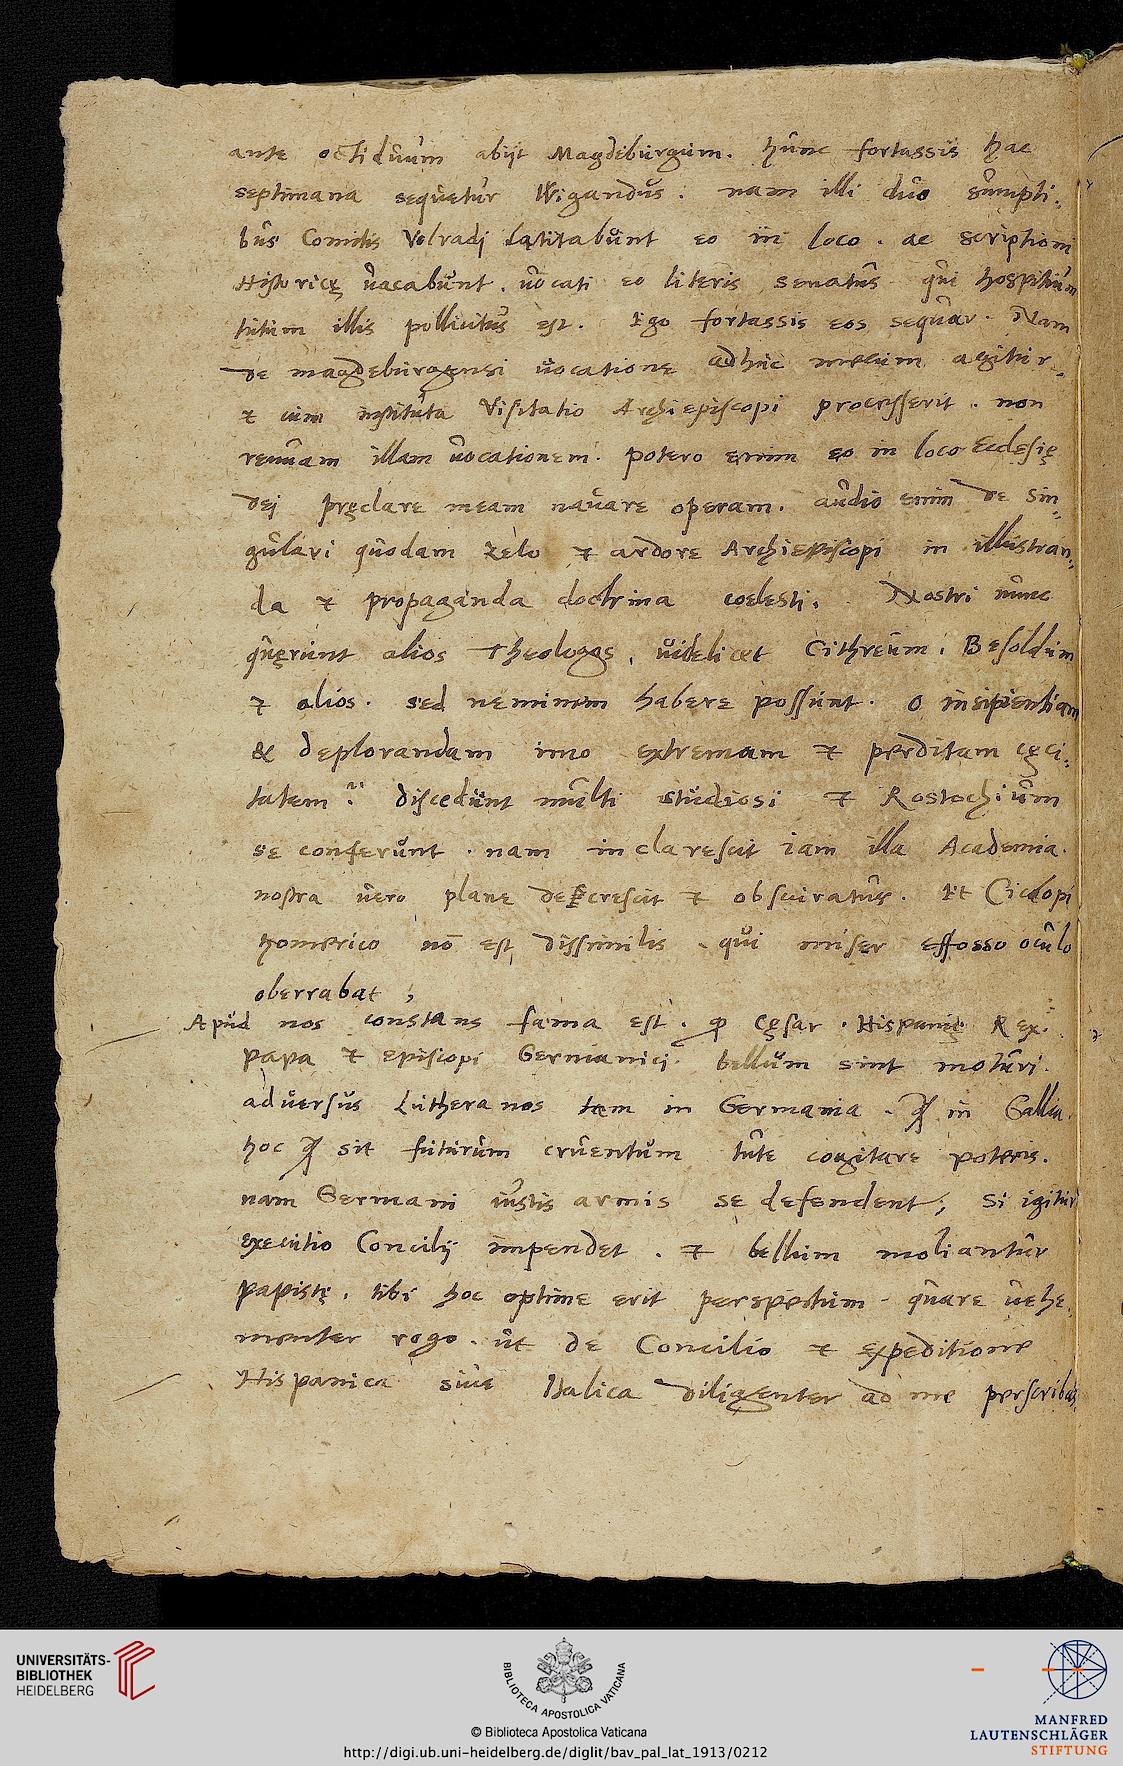 ante octiduum abijt Magdeburgum. hunc fortassis hac
septimana sequetur Wigandus. nam illi duo sumpti-
bus Comitis Volradj latitabunt eo in loco. ac scriptioni
Historicę vacabunt. vocati eo literis senatus qui hospitium
tutum illis pollicitus est. Ego fortassis eos sequar. Nam
de magdeburgensi uocatione adhuc mecum agitur,
& cum instituta Visitatio Archiepiscopi processerit. non
renuam illam vocationem. potero enim eo in loco Ecclesię
dej pręclare meam nauare operam. audio enim de sin-
gulari quodam zelo & ardore Archiepiscopi in illustran-
da & propaganda doctrina coelesti. Nostri nunc
quęrunt alios Theologos, uidelicet Cithreum. Besoldum
& alios. sed neminem habere possunt. o insipientiam
& deplorandam imo extremam & perditam cęci-
tatem! discedunt multi studiosi & Rostochium
se conferunt. nam inclarescit iam illa Academia.
nostra uero plane decrescit & obscuratur. Et Ciclopi
homerico nō est dissimilis. qui miser effosso oculo
oberrabat,
Apud nos constans fama est. ꝙ Cęsar. Hispanię Rex.
papa & episcopi Germanici bellum sint moturi.
adversus Lutheranos tam in Germania. ꝙ in Gallia.
hoc ꝙ sit futurum cruentum tute cogitare poteris.
nam Germani iustis armis se defendent; Si igitur
executio Concilij impendet. & bellum moliantur
papistę, tibi hoc optime erit perspectum. quare uehe-
menter rogo. ut de Concilio & expeditione
Hispanica siue Italica diligenter ad me perscribas,
UNIVERSITÄTS-
BIBLIOTHEK
HEIDELBERG
BIBLIOTECA APOSTOLICA VATICANA
© Biblioteca Apostolica Vaticana
http://digi.ub.uni-heidelberg.de/diglit/bav_pal_lat_1913/0212
MANFRED
LAUTENSCHLÄGER
STIFTUNG